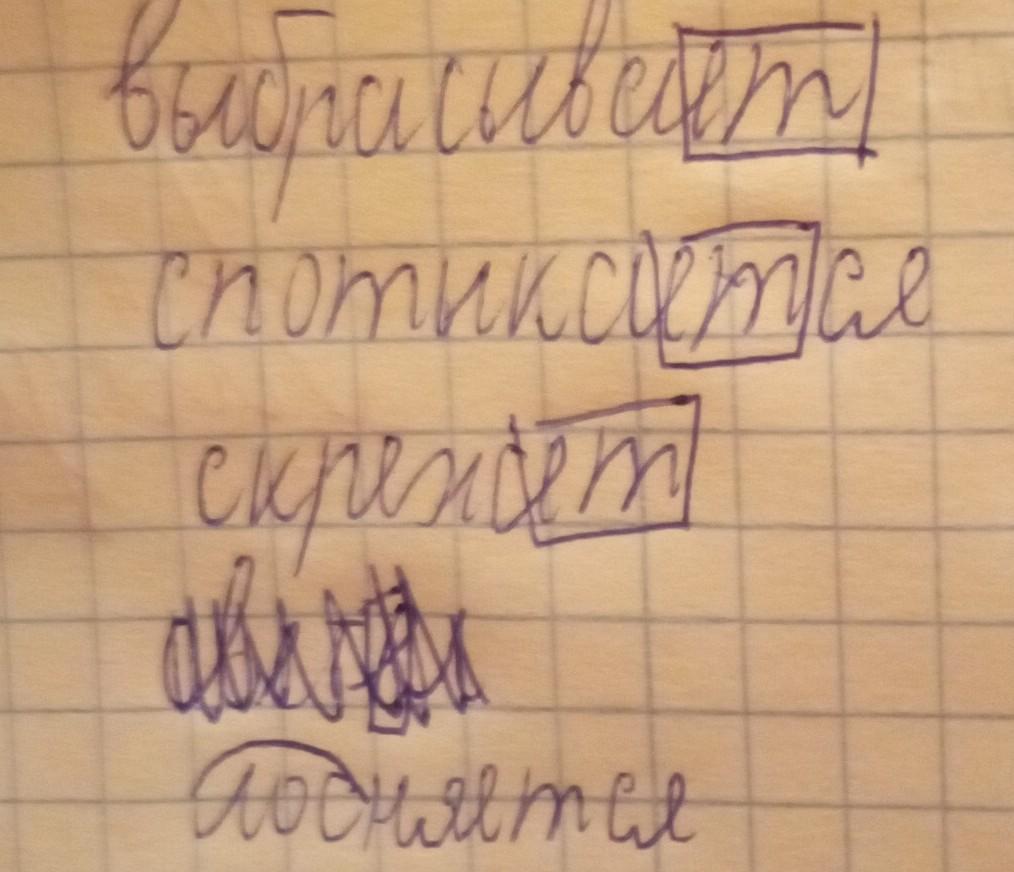 выбрасывает
спотикается
скрежет
лосняется